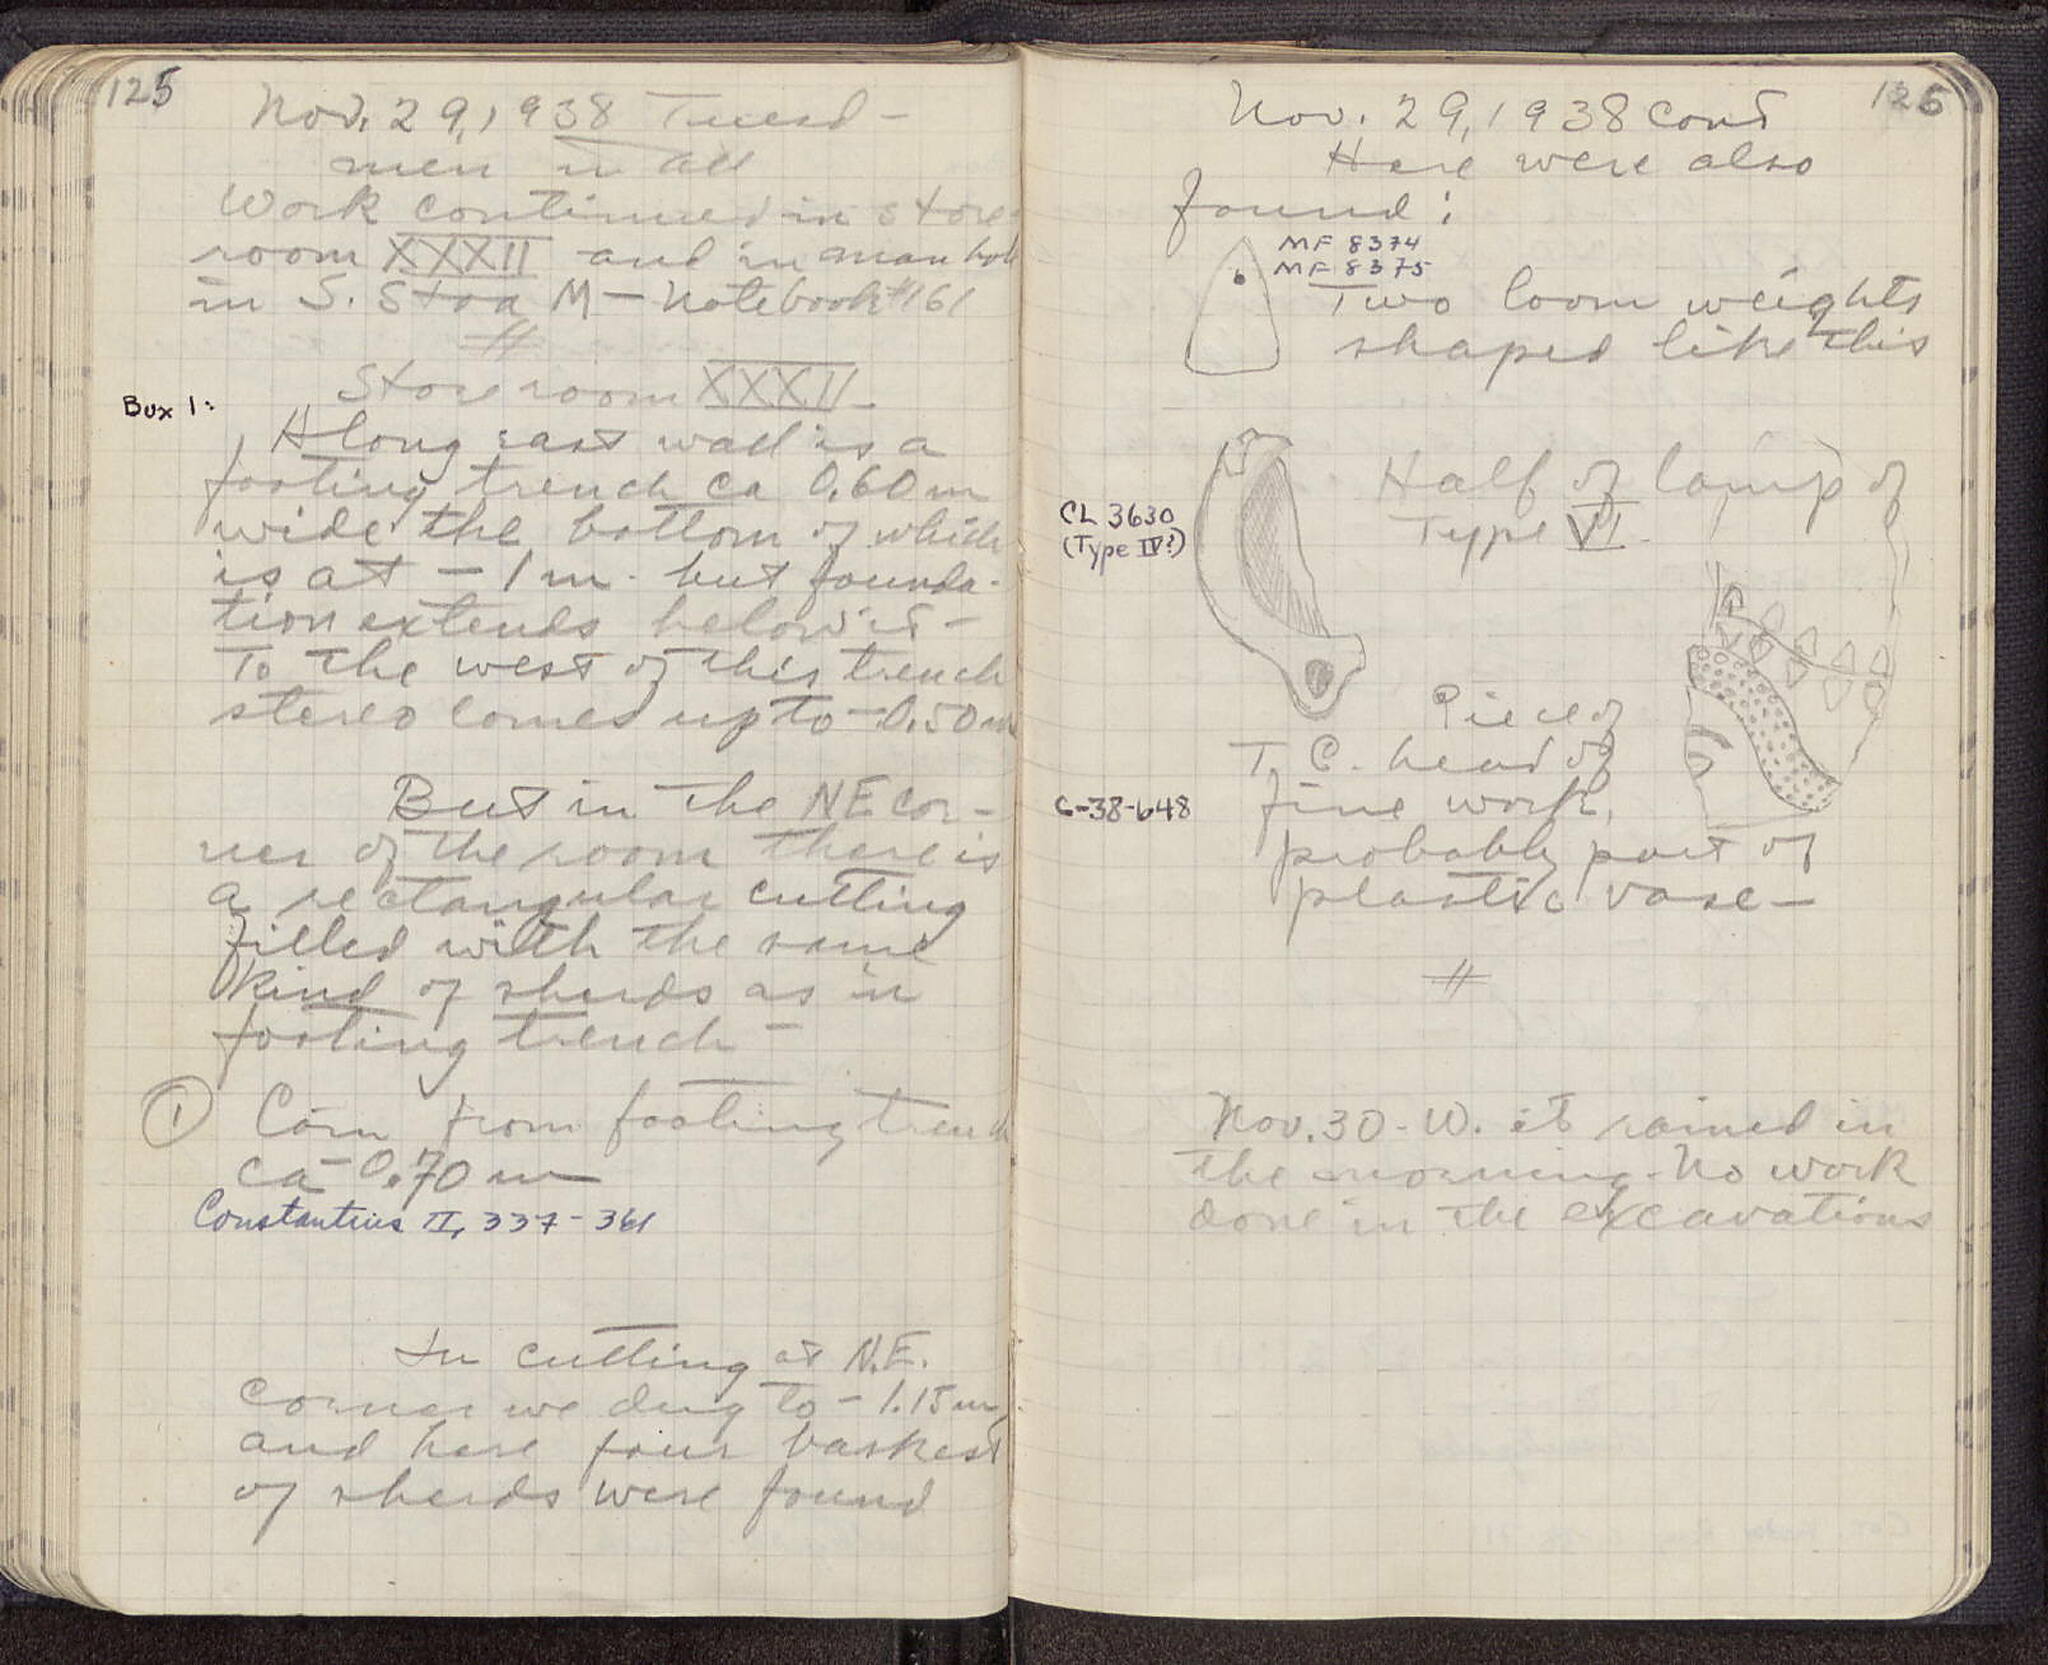 125
Nov. 29, 1938 Tuesd-
men in all
Work continued in store-
room XXXII and in man hole
in S. Stoa M - Notebook #161
Storeroom XXXII
Box 1:
Along east wall is a
footing trench ca 0.60m
wide the bottom of which
is at - 1 m. but founda-
tion extends below it -
To the west of this trench
stereo comes up to -0.50m
But in the NE cor-
ner of the room there is
a rectangular cutting
filled with the same
kind of sherds as in
footing trench -
1 Coin from footing trench
ca -0.70 m
Constantius II, 337-361
In cutting at N.E.
corner we dug to - 1.15m,
and here four baskest
of sherds were found
126
Nov. 29, 1938 cont
Here were also
found:
MF 8374
MF 8375
Two loom weights
shaped like this
Half of lamp of
Type VI.
CL 3630
(Type IV?)
Piece of
T. C. head of
C-38-648
fine work,
probably part of
plastic vase-
Nov. 30 - W. it rained in
the morning - No work
done in the excavations